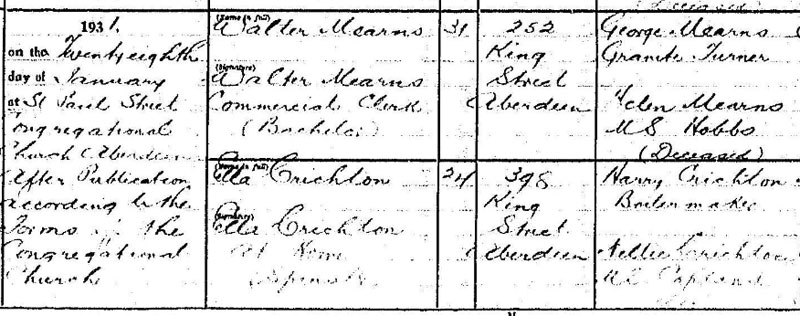 1931.
on the Twenty eighth
day of January
at St Paul Street
Congregational
Church Aberdeen
After Publication
according to the
Forms of the
Congregational
Church
(Name in full)
Walter Mearns
(Signature)
Walter Mearns
Commercial Clerk
(Bachelor)
31
252
King
Street
Aberdeen
George Mearns
Granite Turner
Helen Mearns
M.S. Hobbs
(Deceased)
(Name in full)
Ella Crichton
(Signature)
Ella Crichton
At Home
(Spinster)
24
398
King
Street
Aberdeen
Harry Crichton
Boilermaker
Nellie Crichton
M.S. Copland